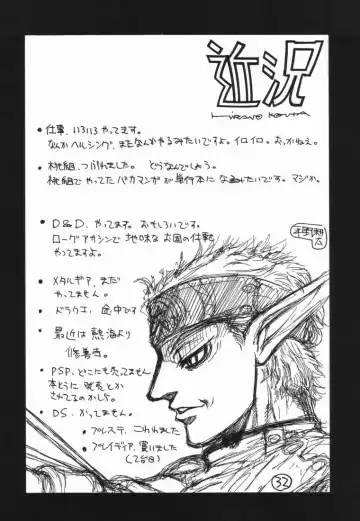 近況
HIRANO KOUTA
• 仕事、いろいろやってます。
なんかヘルシング、またなんかやるみたいですよ。イロイロ。おっかねえ。
• 桃組、つぶれました。どうなんでしょう。
桃組でやってたバカマンガが単行本になるみたいです。マジか。
• D&D、やってます。おもしろいです。
ローグアサシンで地味なお国の仕事
やってますよ。
平野耕太
• メタルギア、まだ
やってません。
• ドラクエ、途中です
• 最近は熱海より
修善寺。
• PSP、どこにも売ってません
本当に発売とか
されてるのかしら。
• DS、かってません。
• プレステ、こわれました
• プレイディア、買いました
(2台目)
32